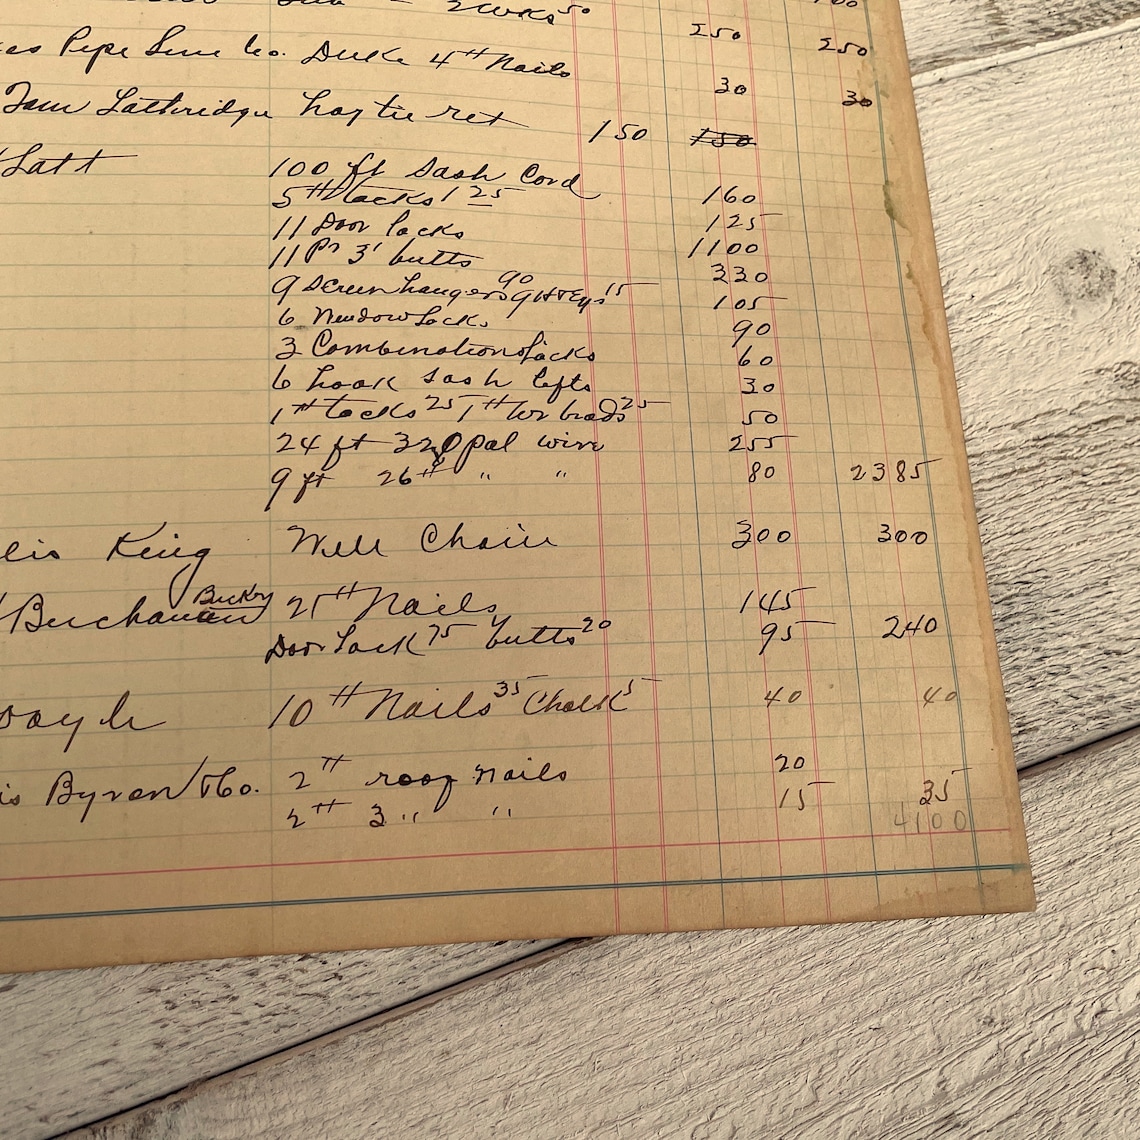 2 wks 50 100
250 250
Pipe Line Co. Duck 4 # Nails
30 30
Tom Lathridge hay tie ret 150 150
Latt 100 ft Sash Cord 160
5 # tacks 1 25 125
11 Door locks 1100
11 Pr 3' butts 330
9 Screen hangers 90 9 H+Eys 15 105
6 Window Locks 90
3 Combination Locks 60
6 hook Sash lifts 30
1 # tacks 25 1 # wr brads 25 50
24 ft 32 Opal wire 255
9 ft 26 " " " 80 2385
King Well Chain 300 300
Buchanan Buckby 21 # Nails 145
Door Lock 75 butts 20 95 240
10 # Nails 35 Chalk 5 40 40
Byren & Co. 2 # roof nails 20
2 # 3 " " 15 35
4100